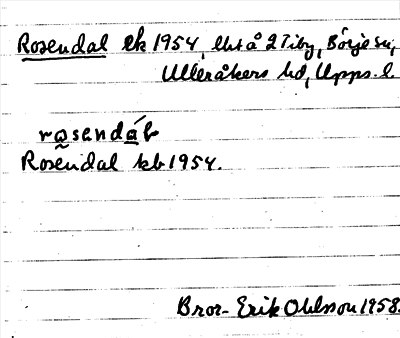 Rosendal ek 1954, lht å 2 Tiby, Börje sn,
Ulleråkers hd, Upps. l.
rosendáɫ
Rosendal kb 1954.
Bror-Erik Ohlsson 1958.